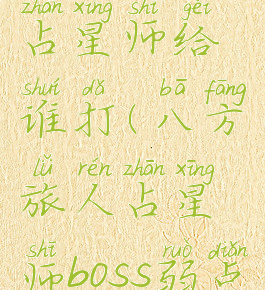 zhān xīng shī gěi
占星师给
shuí dǎ bā fāng
谁打(八方
lǚ rén zhān xīng
旅人占星
shī ruò diǎn
师boss弱点